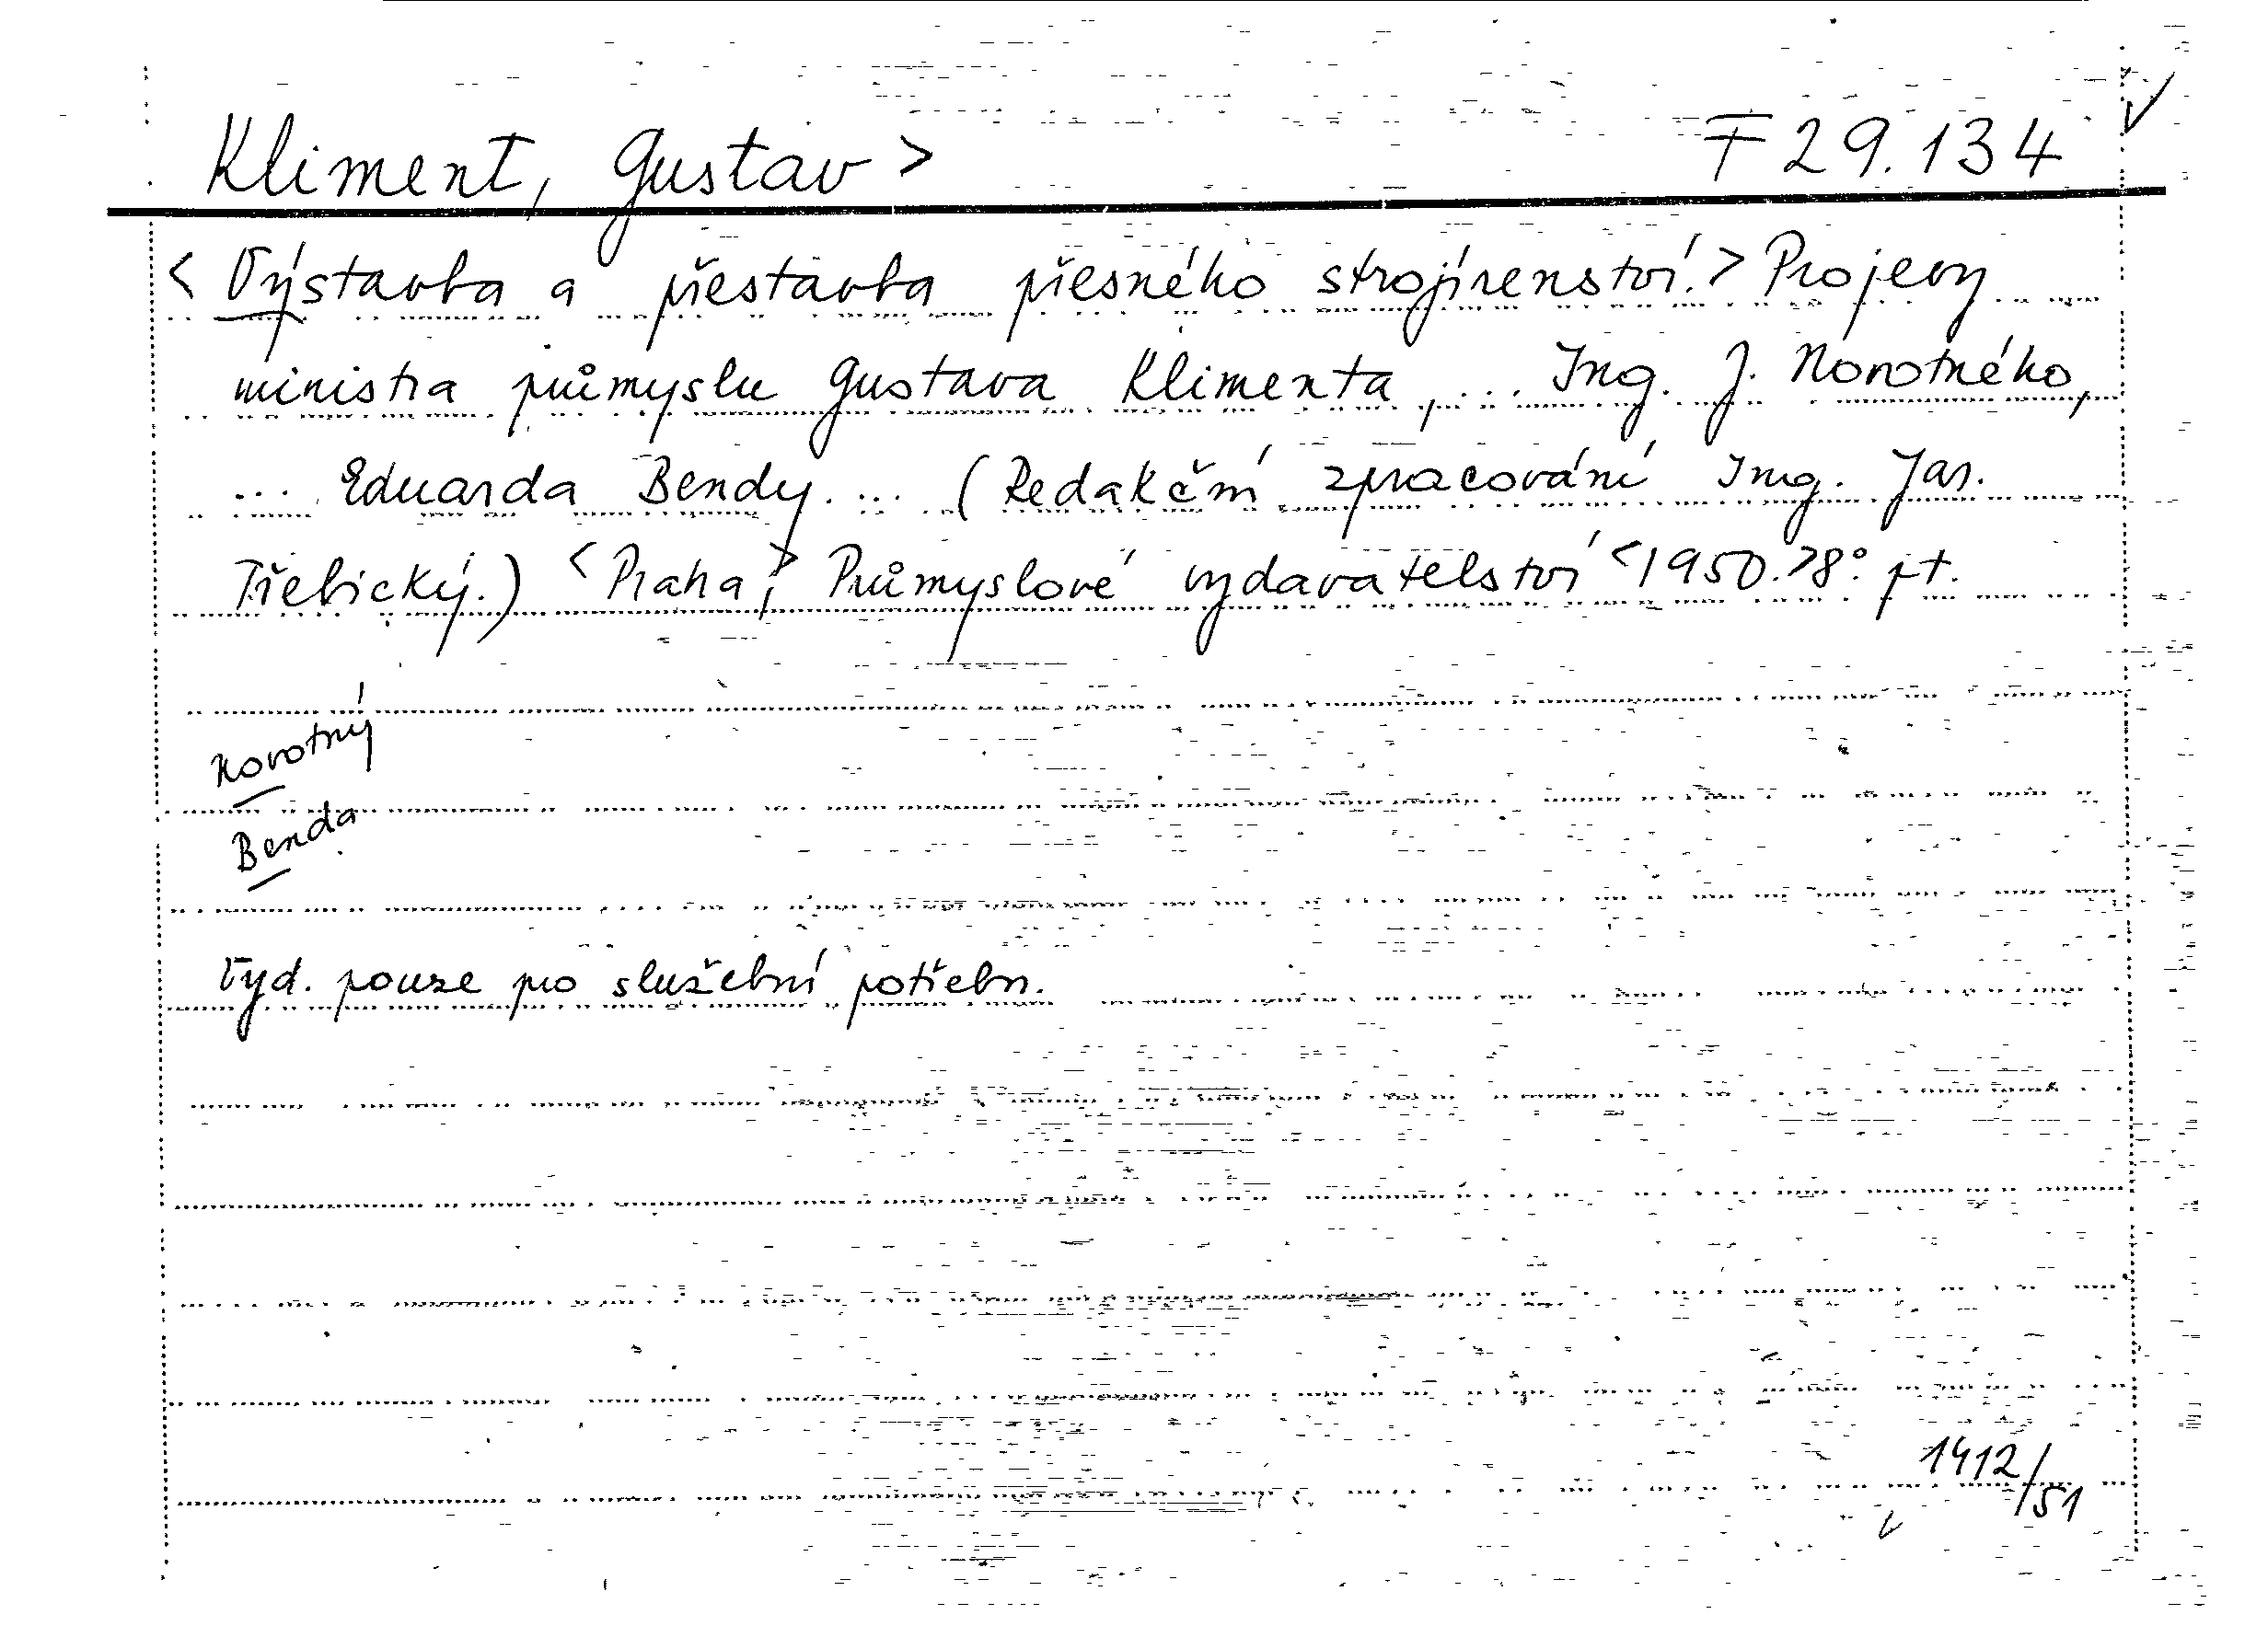 Kliment, Gustav > F 29.134
< Výstavba a přestavba přesného strojírenství. > Projevy
ministra průmyslu Gustava Klimenta, ... Ing. J. Novotného,
... Eduarda Bendy ... (Redakční zpracování Ing. Jar.
Třebický.) < Praha, > Průmyslové vydavatelství < 1950. > 8°. pt.
Novotný
Benda
Vyd. pouze pro služební potřebu.
1412/51